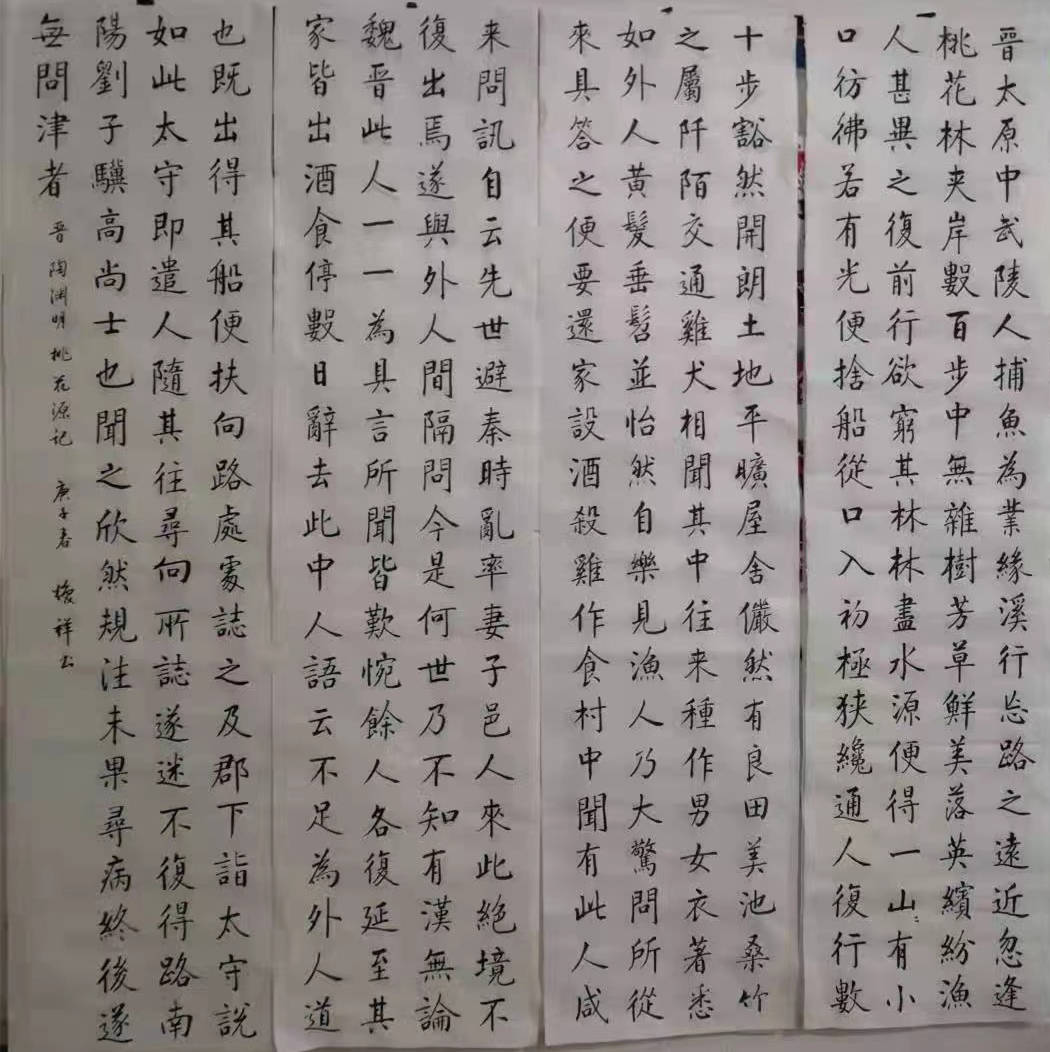 晉太原中武陵人捕魚為業緣溪行忘路之遠近忽逢
桃花林夾岸數百步中無雜樹芳草鮮美落英繽紛漁
人甚異之復前行欲窮其林林盡水源便得一山:有小
口彷彿若有光便捨船從口入初極狹纔通人復行數
十步豁然開朗土地平曠屋舍儼然有良田美池桑竹
之屬阡陌交通雞犬相聞其中往来種作男女衣著悉
如外人黃髮垂髫並怡然自樂見漁人乃大驚問所從
來具答之便要還家設酒殺雞作食村中聞有此人咸
来問訊自云先世避秦時亂率妻子邑人來此絕境不
復出焉遂與外人間隔問今是何世乃不知有漢無論
魏晋此人一一為具言所聞皆歎惋餘人各復延至其
家皆出酒食停數日辭去此中人語云不足為外人道
也既出得其船便扶向路處處誌之及郡下詣太守說
如此太守即遣人隨其往尋向所誌遂迷不復得路南
陽劉子驥高尚士也聞之欣然規往未果尋病終後遂
無問津者 晋陶渊明桃花源记 庚子春 祥书